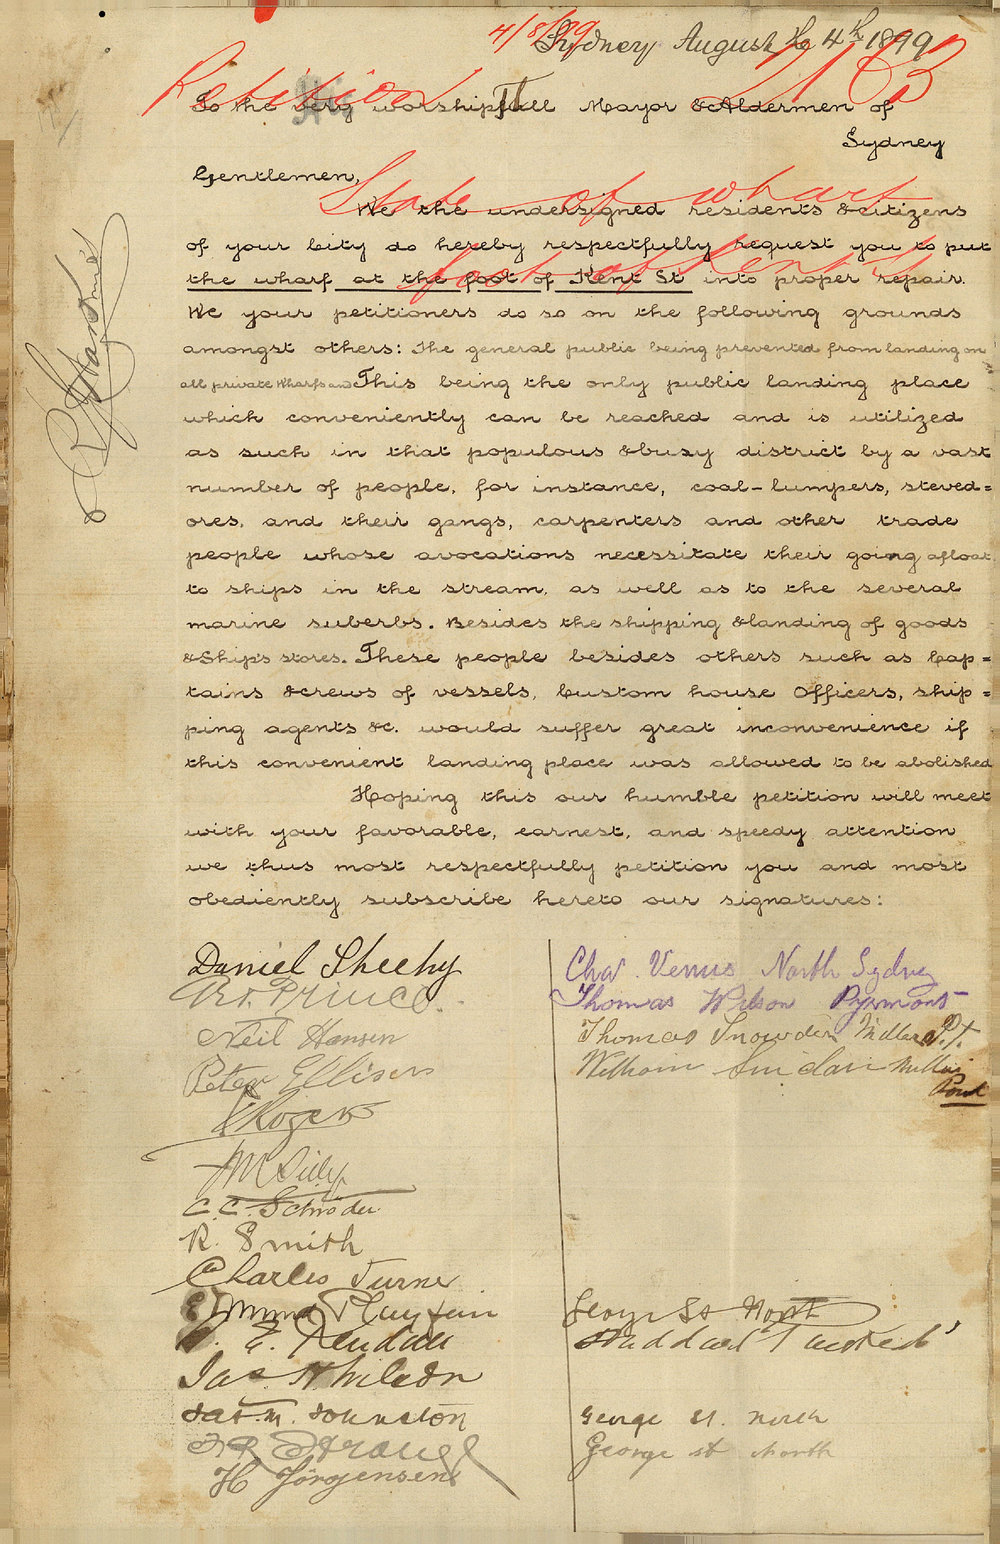 4/8/99
Sydney August the 4th 1899
Petition
To the very worshipfull Mayor & Aldermen of
Sydney
Gentlemen,
State of wharf
We the undersigned residents & citizens
of your City do hereby respectfully request you to put
foot of Kent St
the wharf at the foot of Kent St into proper repair.
We your petitioners do so on the following grounds
amongst others: The general public being prevented from landing on
all private Wharfs and This being the only public landing place
which conveniently can be reached and is utilized
as such in that populous & busy district by a vast
number of people, for instance, coal-lumpers, steved=
ores, and their gangs, carpenters and other trade
people whose avocations necessitate their going afloat
to ships in the stream, as well as to the several
marine suberbs. Besides the shipping & landing of goods
& Ship's stores. These people besides others such as Cap=
tains & crews of vessels, Custom house Officers, ship=
ping agents &c. would suffer great inconvenience if
this convenient landing place was allowed to be abolished
Hoping this our humble petition will meet
with your favorable, earnest, and speedy attention
we thus most respectfully petition you and most
obediently subscribe hereto our signatures:
Daniel Sheehy
Prince
Neil Hansen
Peter Ellisen
C. C. Schröder
R. Smith
Charles Turner
Edmund
E. Kendall
Jas Wilson
Jas. M. Johnston
H Jörgensen
Chas. Venus North Sydney
Thomas Wilson Pyrmont
Thomas Snowden Millers Pt.
William Sinclair Millers
Point
George St North
George St. North
George st North